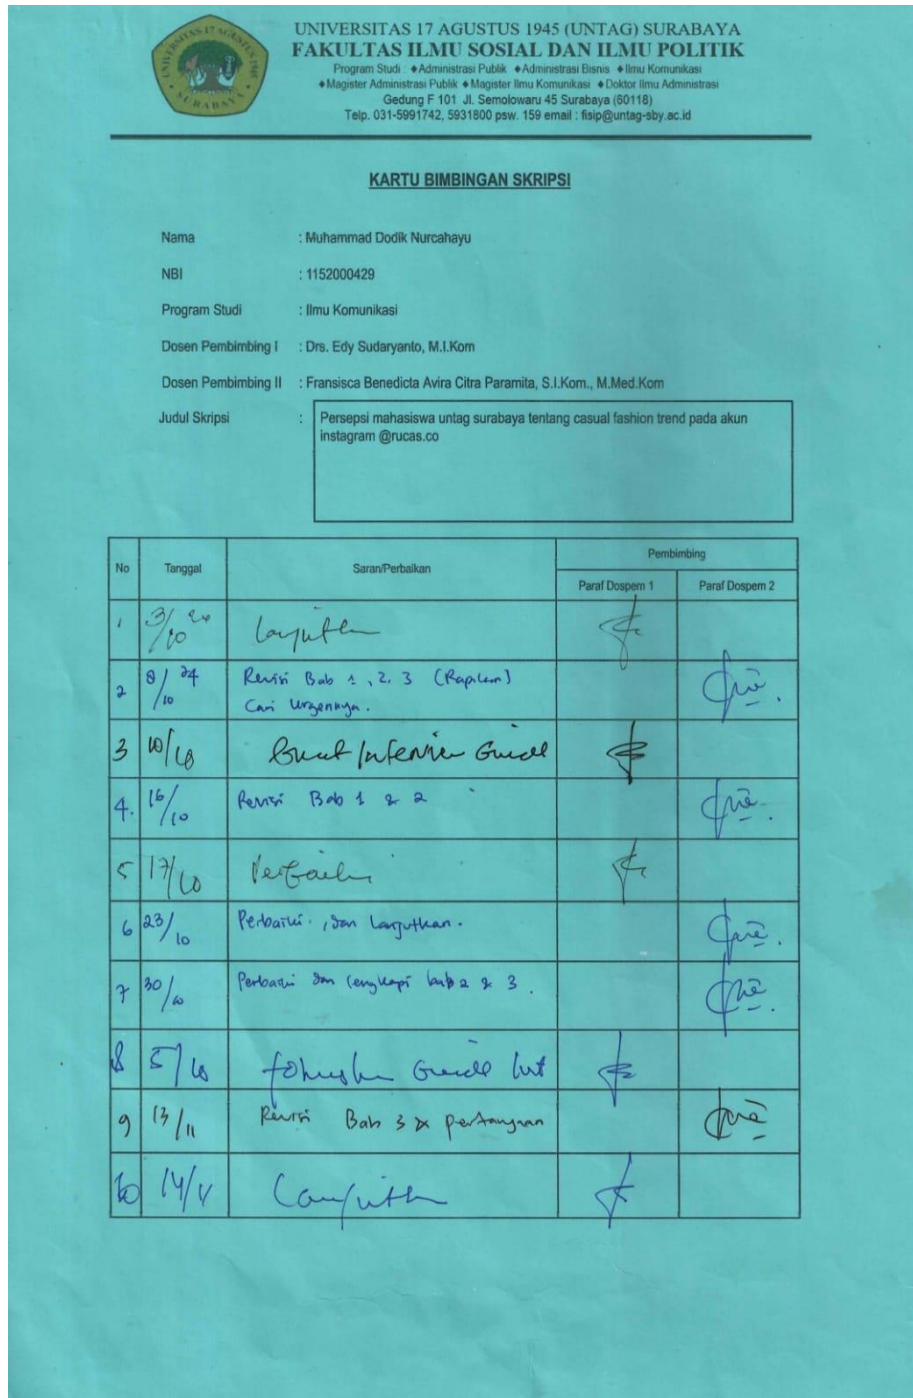 UNIVERSITAS 17 AGUSTUS 1945
SURABAYA
UNIVERSITAS 17 AGUSTUS 1945 (UNTAG) SURABAYA
FAKULTAS ILMU SOSIAL DAN ILMU POLITIK
Program Studi : ◆Administrasi Publik ◆Administrasi Bisnis ◆Ilmu Komunikasi
◆Magister Administrasi Publik ◆Magister Ilmu Komunikasi ◆Doktor Ilmu Administrasi
Gedung F 101 Jl. Semolowaru 45 Surabaya (60118)
Telp. 031-5991742, 5931800 psw. 159 email : fisip@untag-sby.ac.id
KARTU BIMBINGAN SKRIPSI
Nama : Muhammad Dodik Nurcahayu
NBI : 1152000429
Program Studi : Ilmu Komunikasi
Dosen Pembimbing I : Drs. Edy Sudaryanto, M.I.Kom
Dosen Pembimbing II : Fransisca Benedicta Avira Citra Paramita, S.I.Kom., M.Med.Kom
Judul Skripsi : Persepsi mahasiswa untag surabaya tentang casual fashion trend pada akun
instagram @rucas.co
No Tanggal Saran/Perbaikan Pembimbing
Paraf Dospem 1 Paraf Dospem 2
1 3/10 24 Lanjutkan
2 8/10 24 Revisi Bab 1, 2, 3 (Rapikan)
Cari Urgennya.
3 10/10 Buat Interview Guide
4. 16/10 Revisi Bab 1 & 2
5 17/10 Perbaiki
6 23/10 Perbaiki, dan Lanjutkan.
7 30/10 Perbaiki dan lengkapi bab 2 & 3.
8 5/10 Guide
9 13/11 Revisi Bab 3 & pertanyaan
10 14/11 Lanjutkan